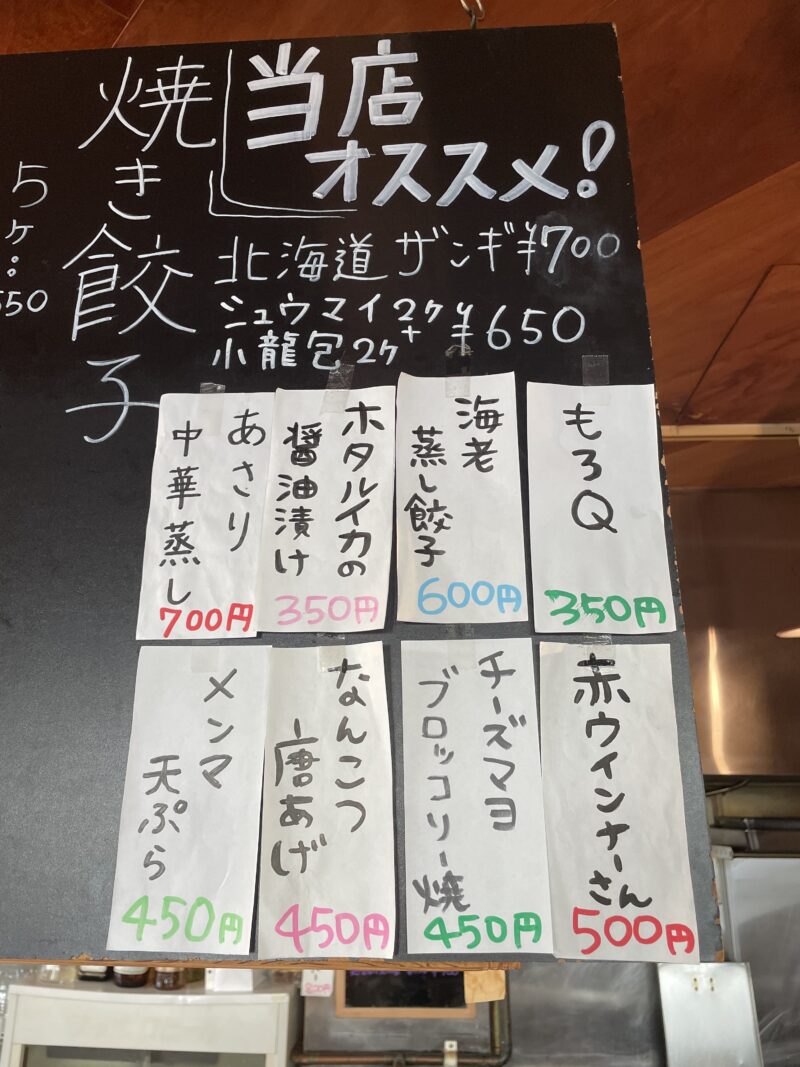 当店
オススメ!
北海道 ザンギ ¥700
シュウマイ2ケ+
小龍包2ケ ¥650
焼き餃子
5ケ:
550
もろQ
350円
海老
蒸し餃子
600円
ホタルイカの
醤油漬け
350円
あさり
中華蒸し
700円
赤ウインナーさん
500円
チーズマヨ
ブロッコリー焼
450円
なんこつ
唐あげ
450円
メンマ
天ぷら
450円